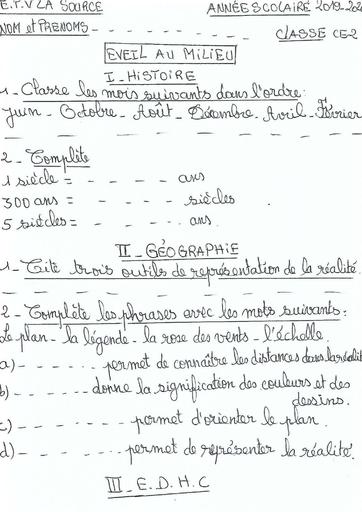 E.P.V LA SOURCE ANNÉE SCOLAIRE 2019-202
NOM et PRENOMS - - - - - - - - - CLASSE CE2
EVEIL AU MILIEU
I - HISTOIRE
1 - Classe les mois suivants dans l'ordre:
Juin - Octobre - Août - Décembre - Avril - Février
2 - Complète
1 siècle = - - - - - ans
300 ans = - - - - - siècles
5 siècles = - - - - - ans.
II - GÉOGRAPHIE
1 - Cite trois outils de représentation de la réalité.
2 - Complète les phrases avec les mots suivants:
Le plan - la légende - la rose des vents - l'échelle.
a) - - - - - - permet de connaître les distances dans la réalité
b) - - - - - - donne la signification des couleurs et des
dessins.
c) - - - - - - permet d'orienter le plan.
d) - - - - - - permet de représenter la réalité.
III - E.D.H.C